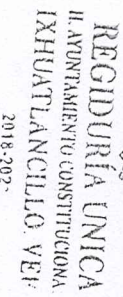 REGIDURÍA UNICA
H. AYUNTAMIENTO CONSTITUCIONA
IXHUATLANCILLO, VER
2018-202